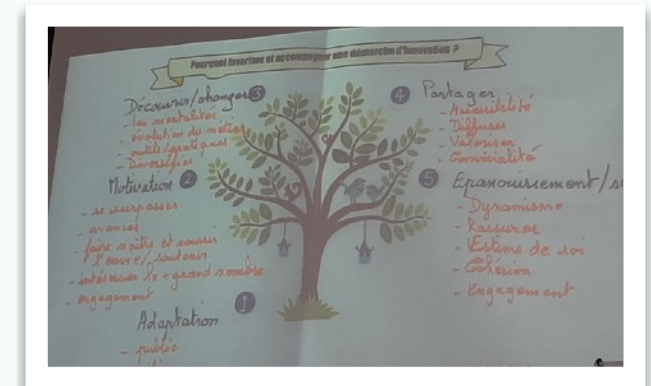 Pourquoi favoriser et accompagner une démarche d'innovation ?
Découvrir/changer 3
- les mentalités
- évolution du métier
- outils/pratiques
- Diversifier
Motivation 2
- se surpasser
- avancer
- faire naître et nourrir
l'envie/soutenir
- intéresser le + grand nombre
- engagement
1
Adaptation
- public
4 Partager
- Accessibilité
- Diffuser
- Valoriser
- Convivialité
5 Epanouissement/
- Dynamisme
- Rassurer
- Estime de soi
- Cohésion
- Engagement